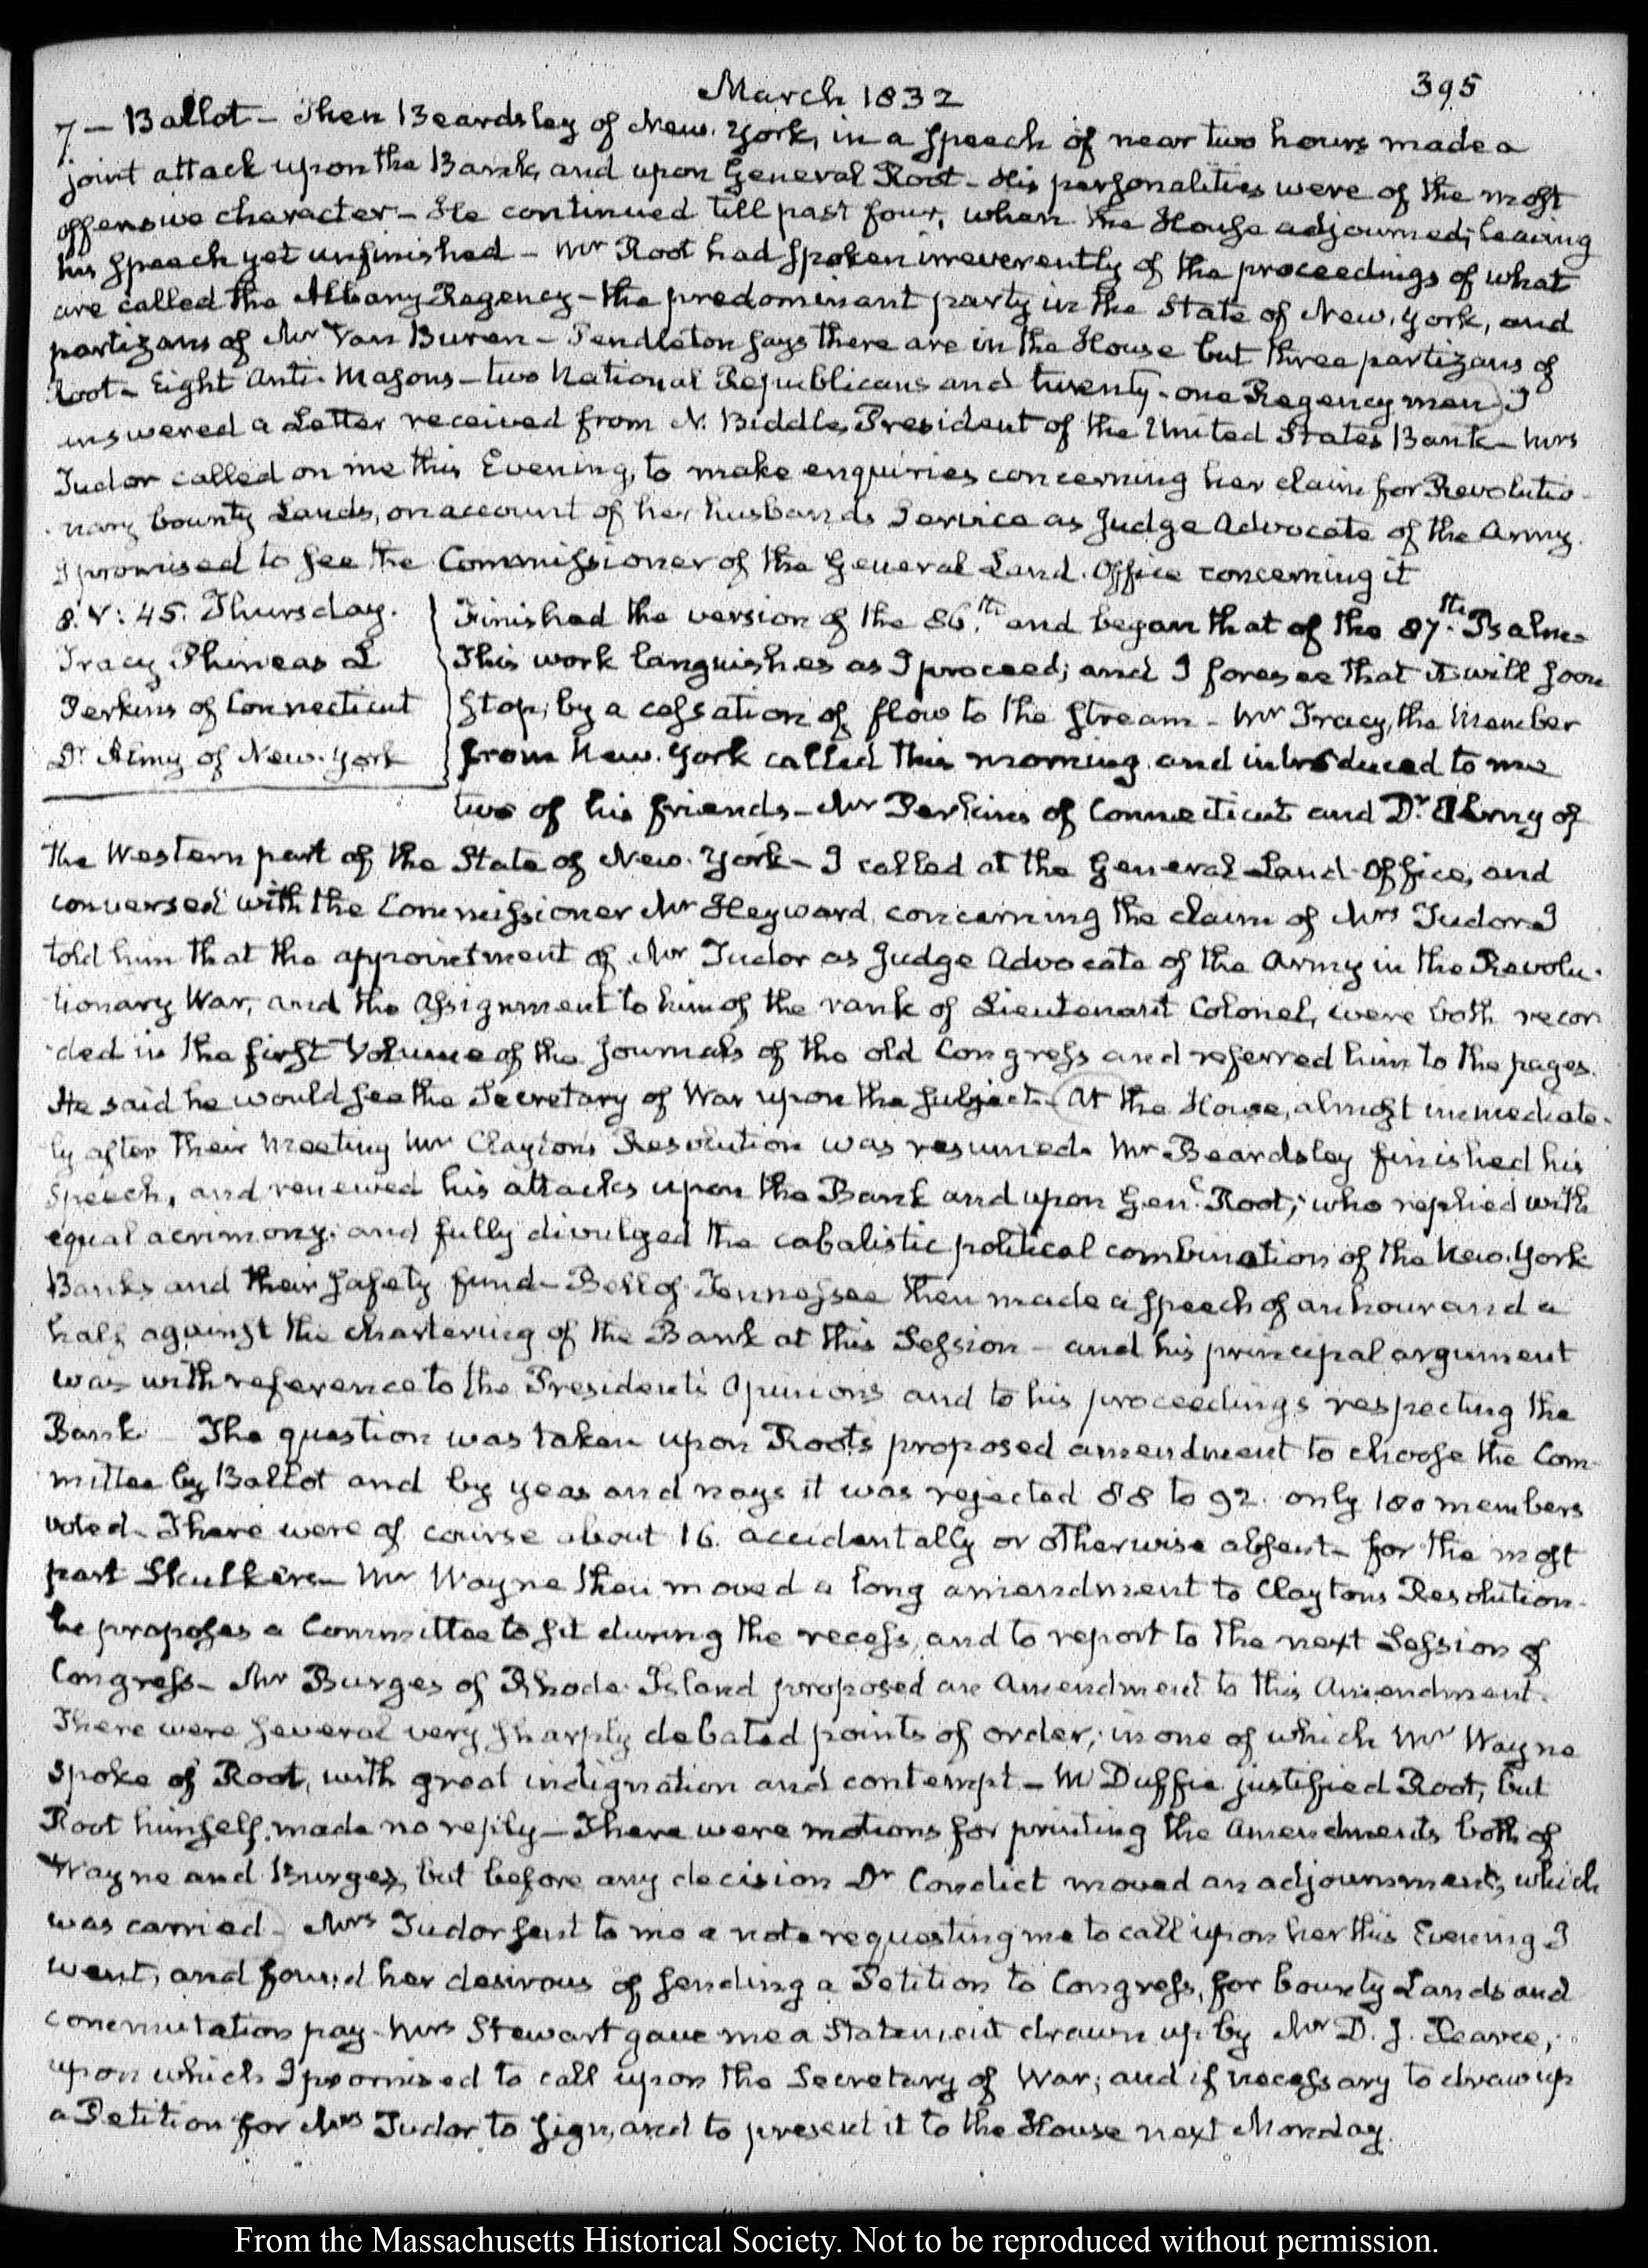 March 1832
395
7 — Ballot — Then Beardsley of New. York, in a speech of near two hours made a
joint attack upon the Bank, and upon General Root — His personalities were of the most
offensive character — He continued till past four, when the House adjourned; leaving
his speech yet unfinished — Mr Root had spoken irreverently of the proceedings of what
are called the Albany Regency — the predominant party in the State of New. York, and
partizans of Mr Van Buren — Pendleton says there are in the House but three partizans of
Root — Eight Anti. Masons — two National Republicans and twenty-one Regency men) I
answered a Letter received from N. Biddle, President of the United States Bank — Mrs
Tudor called on me this Evening, to make enquiries concerning her claim for Revolutio-
-nary bounty Lands, on account of her husbands Service as Judge Advocate of the Army.
I promised to see the Commissioner of the General Land. Office concerning it
8. V: 45. Thursday.
Tracy Phineas L
Perkins of Connecticut
Dr. Almy of New. York
Finished the version of the 86.th and began that of the 87.th Psalm.
This work languishes as I proceed; and I foresee that it will soon
stop; by a cessation of flow to the stream — Mr Tracy, the Member
from New. York called this morning and introduced to me
two of his friends — Mr Perkins of Connecticut and Dr. Almy of
the Western part of the State of New. York — I called at the General Land Office, and
conversed with the Commissioner Mr Heyward, concerning the claim of Mrs Tudor I
told him that the appointment of Mr Tudor as Judge Advocate of the Army in the Revolu-
tionary War, and the assignment to him of the rank of Lieutenant Colonel, were both recor
-ded in the first Volume of the Journals of the old Congress and referred him to the pages.
He said he would see the Secretary of War upon the subject. (At the House, almost immediate-
ly after their meeting Mr Clayton's Resolution was resumed. Mr Beardsley finished his
Speech, and renewed his attacks upon the Bank and upon Genl. Root; who replied with
equal acrimony; and fully divulged the cabalistic political combination of the New. York
Banks and their safety fund — Bell of Tennessee then made a speech of an hour and a
half against the chartering of the Bank at this Session — and his principal argument
was with reference to the President's Opinions and to his proceedings respecting the
Bank — The question was taken upon Root's proposed amendment to choose the Com-
mittee by Ballot and by yeas and nays it was rejected 88 to 92. only 180 members
voted — There were of course about 16. accidentally or otherwise absent — for the most
part Skulkers — Mr Wayne then moved a long amendment to Claytons Resolution.
he proposes a Committee to sit during the recess, and to report to the next Session of
Congress — Mr Burges of Rhode. Island proposed an Amendment to this Amendment.
There were several very sharply debated points of order; in one of which Mr Wayne
spoke of Root, with great indignation and contempt — McDuffie justified Root; but
Root himself, made no reply — There were motions for printing the Amendments both of
Wayne and Burges, but before any decision Dr Condict moved an adjournment, which
was carried) — Mrs Tudor sent to me a note requesting me to call upon her this Evening I
went, and found her desirous of sending a Petition to Congress, for bounty Lands and
commutation pay. Mrs Stewart gave me a Statement drawn up by Mr D. J. Pearce,
upon which I promised to call upon the Secretary of War; and if necessary to draw up
a Petition for Mrs Tudor to sign, and to present it to the House next Monday.
From the Massachusetts Historical Society. Not to be reproduced without permission.